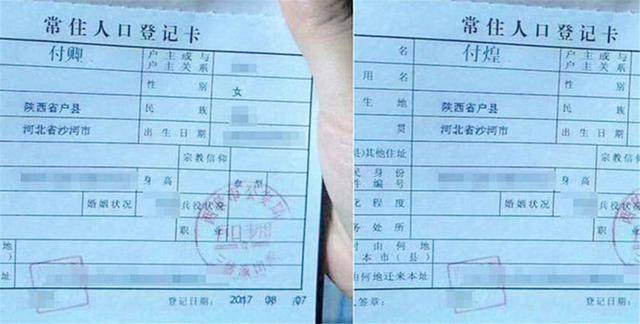 常住人口登记卡
付卿
户主或与
户主关系
性别
女
陕西省户县
民族
河北省沙河市
出生日期
宗教信仰
身高
血型
婚姻状况
兵役状况
职业
地）
地址
登记日期：2017 08 07
常住人口登记卡
名
付煌
户主或与
户主关系
用名
性别
生地
陕西省户县
民族
贯
河北省沙河市
出生日期
县)其他住址
宗教信仰
民身份
件编号
身高
化程度
婚姻状况
兵役状况
务处所
职业
时由何地
本市（县）
何地迁来本址
人签章：
登记日期：